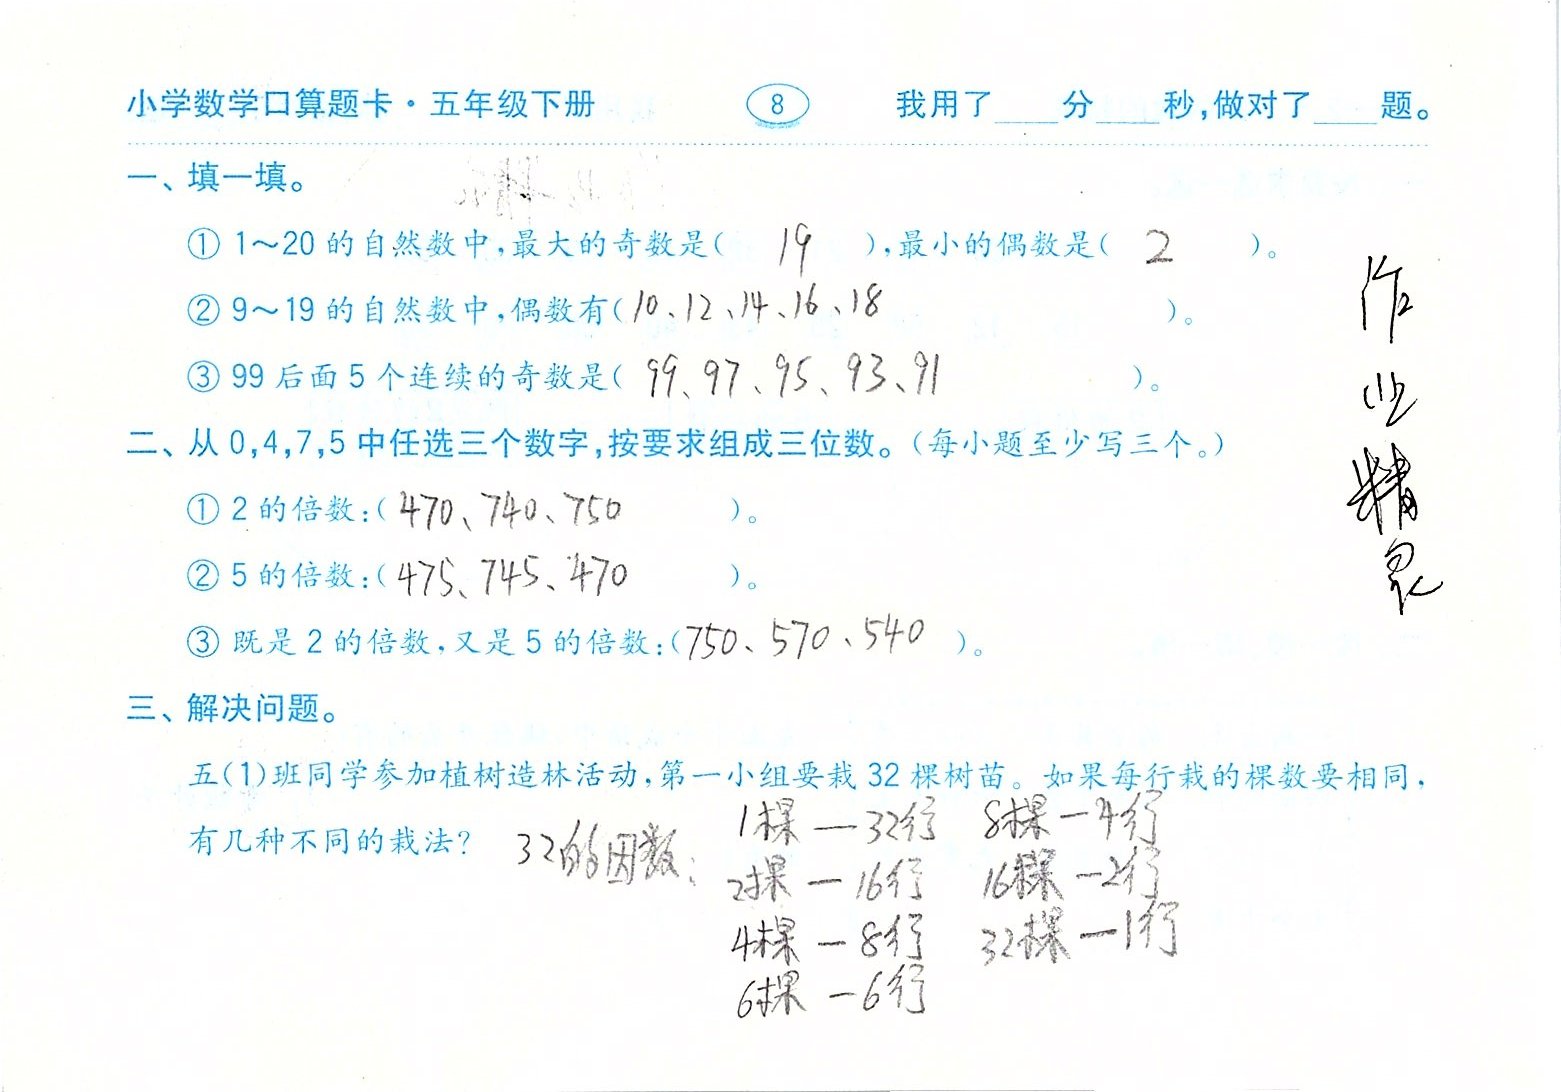 小学数学口算题卡·五年级下册 8 我用了____分____秒,做对了____题。
一、填一填。
① 1～20的自然数中,最大的奇数是( 19 ),最小的偶数是( 2 )。
② 9～19的自然数中,偶数有(10、12、14、16、18 )。
③ 99后面5个连续的奇数是( 99、97、95、93、91 )。
二、从0,4,7,5中任选三个数字,按要求组成三位数。(每小题至少写三个。)
① 2的倍数:( 470、740、750 )。
② 5的倍数:( 475、745、470 )。
③ 既是2的倍数,又是5的倍数:(750、570、540 )。
三、解决问题。
五(1)班同学参加植树造林活动,第一小组要栽32棵树苗。如果每行栽的棵数要相同,
有几种不同的栽法?
32的因数:
1棵—32行 8棵—4行
2棵—16行 16棵—2行
4棵—8行 32棵—1行
6棵—6行
作业精灵